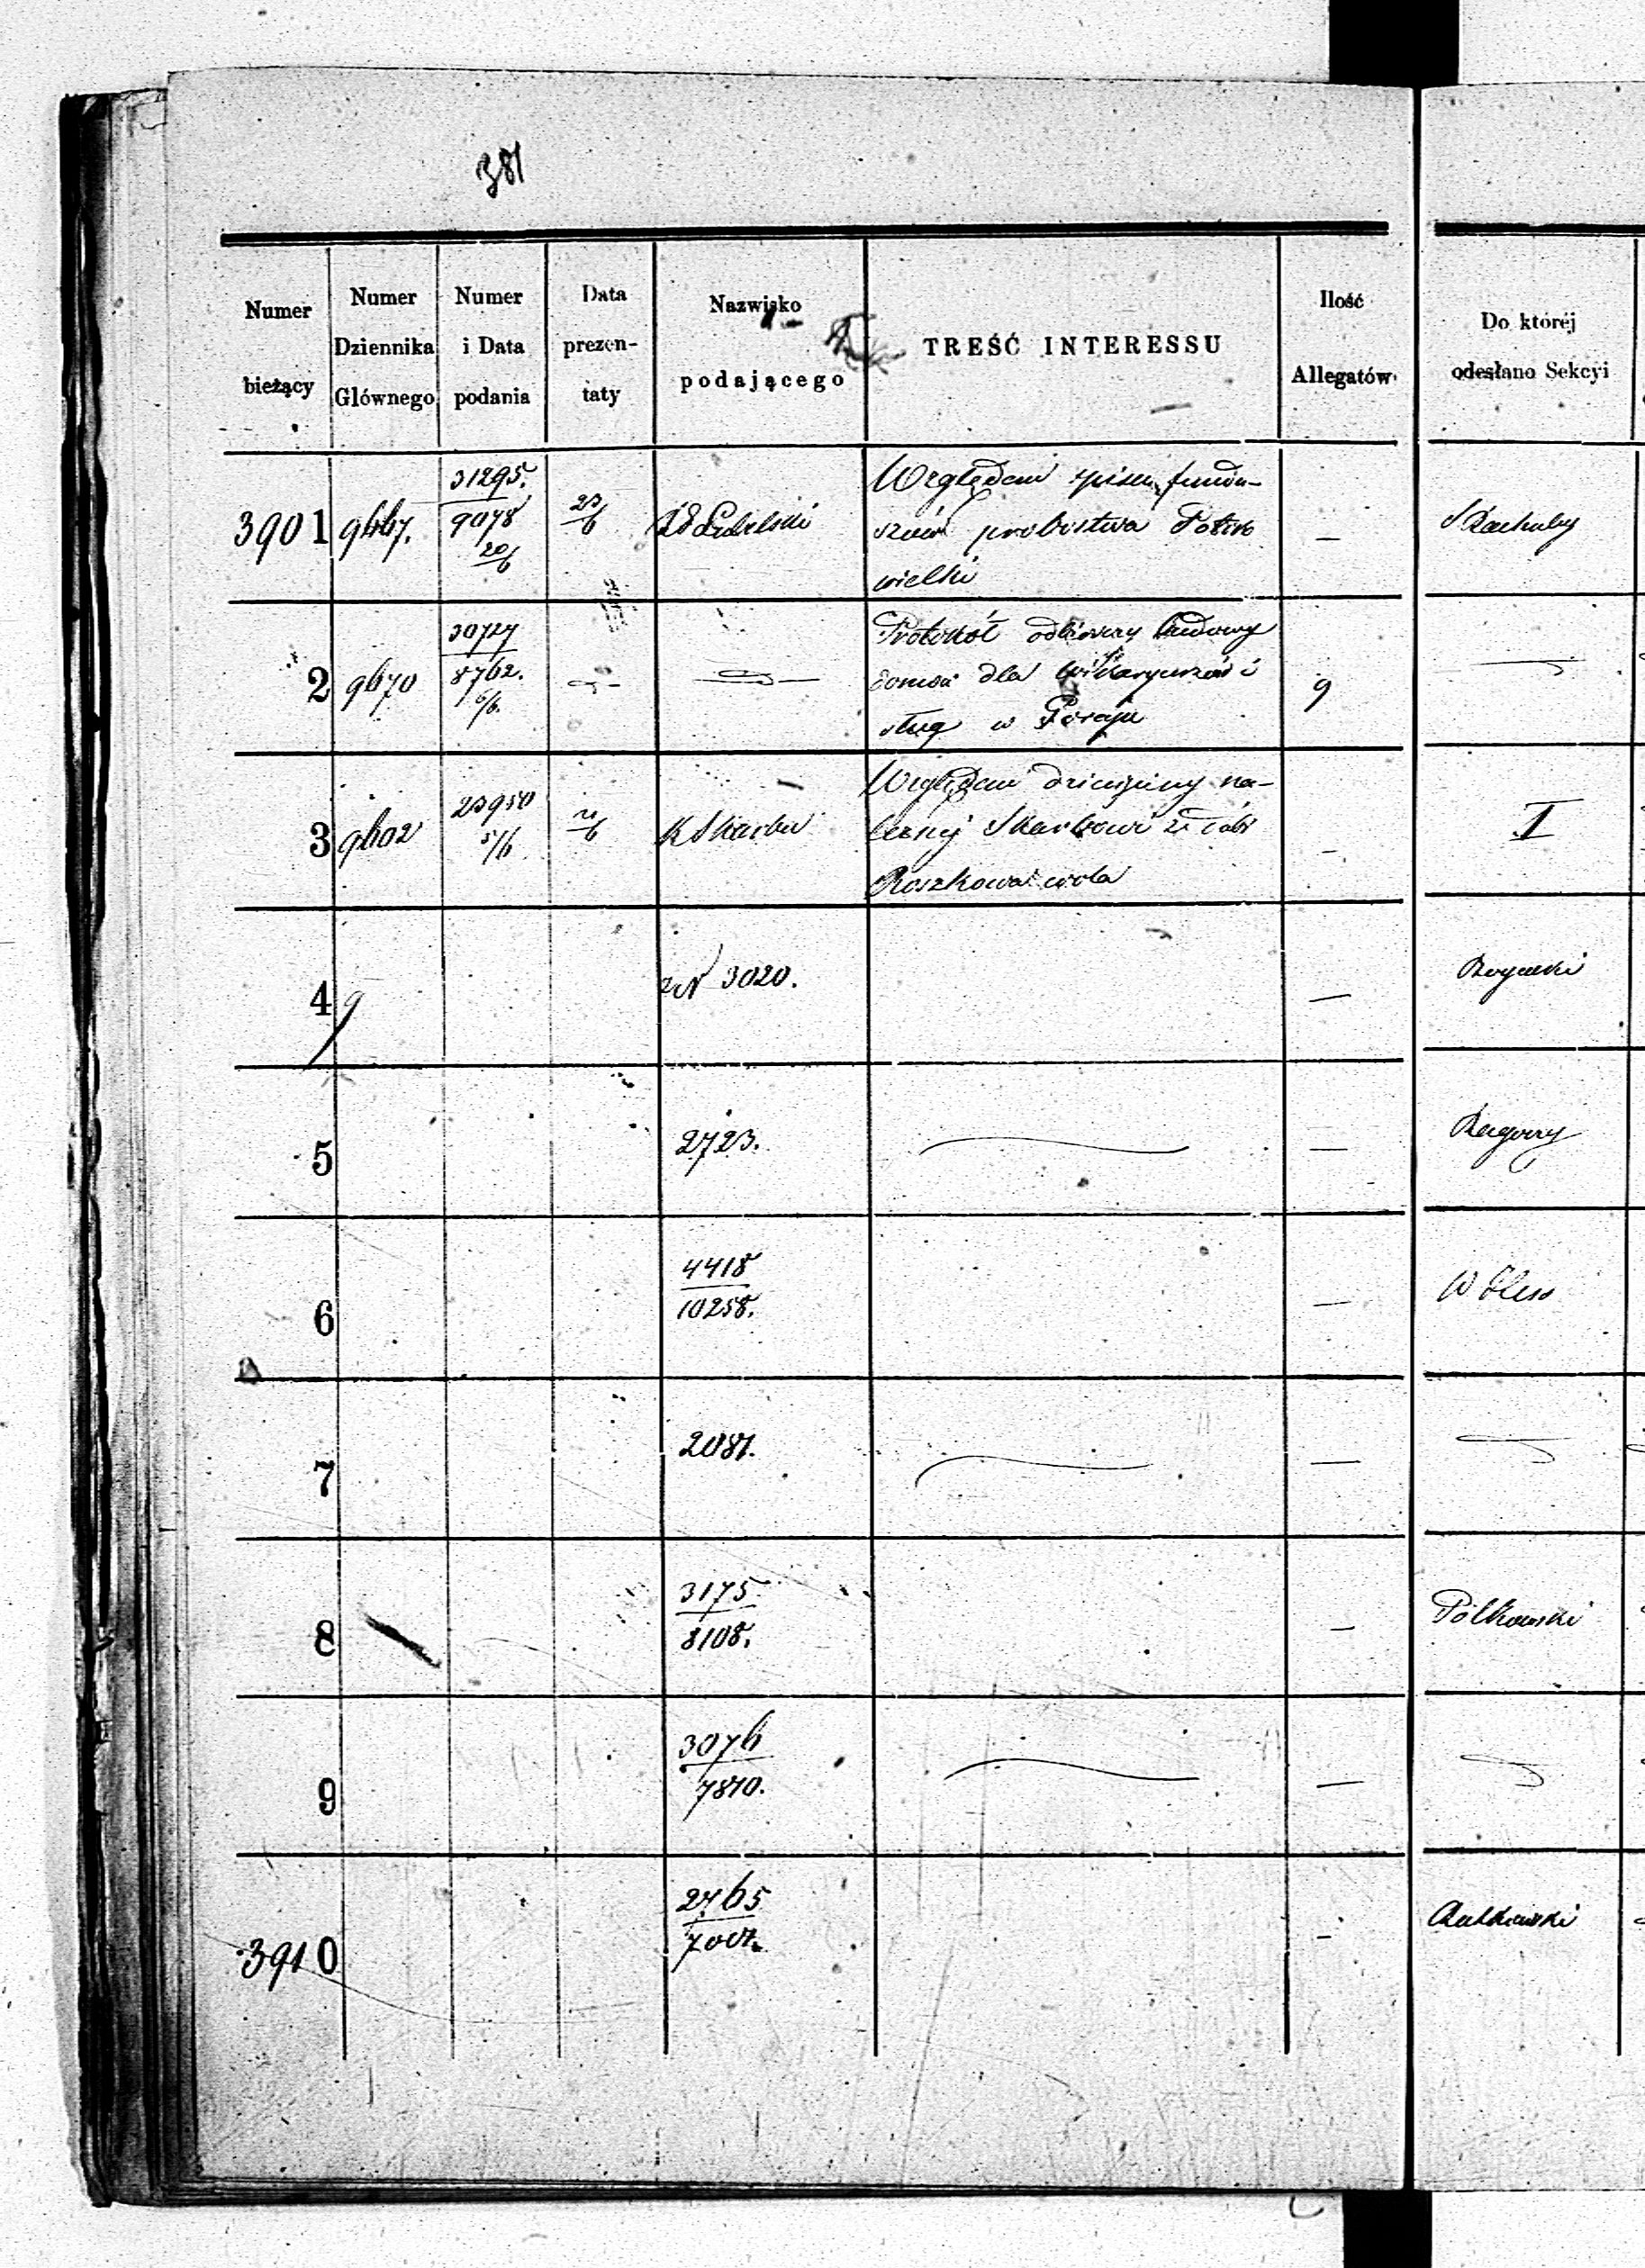 381
Numer bieżący
Numer Dziennika Głównego
Numer i Data podania
Data prezen- taty
Nazwisko podającego
TREŚĆ INTERESSU
Ilość Allegatów
Do któréj odesłano Sekcyi
3901 9667. 31295. 9078 20/6 23/6 Lubelski — 
Względem spisu fundu-
szów probostwa
wielki
2 9670 30727 8762. 6/6. 9
Protokół odbiorczy budowy
domu dla wikaryuszów i
sług w Goraju
3 9602 23950 5/6 K Skarbu — I
Względem dziesięciny na-
leżnej Skarbowi z dóbr
Roszkowa wola
4 9 3020. —
5 2723. —
6 4418 —
10258.
7 2081. —
8 3175 — Polkowski
8108.
9 3076 —
7810.
3910 2765 — Rutkowski